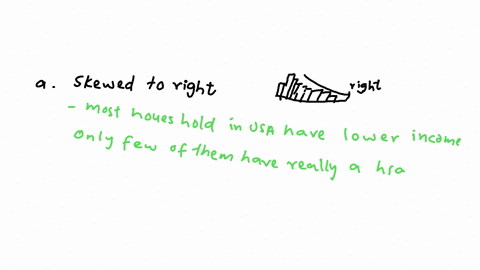 a. Skewed to right
right
- most houes hold in USA have lower income
only few of them have really a